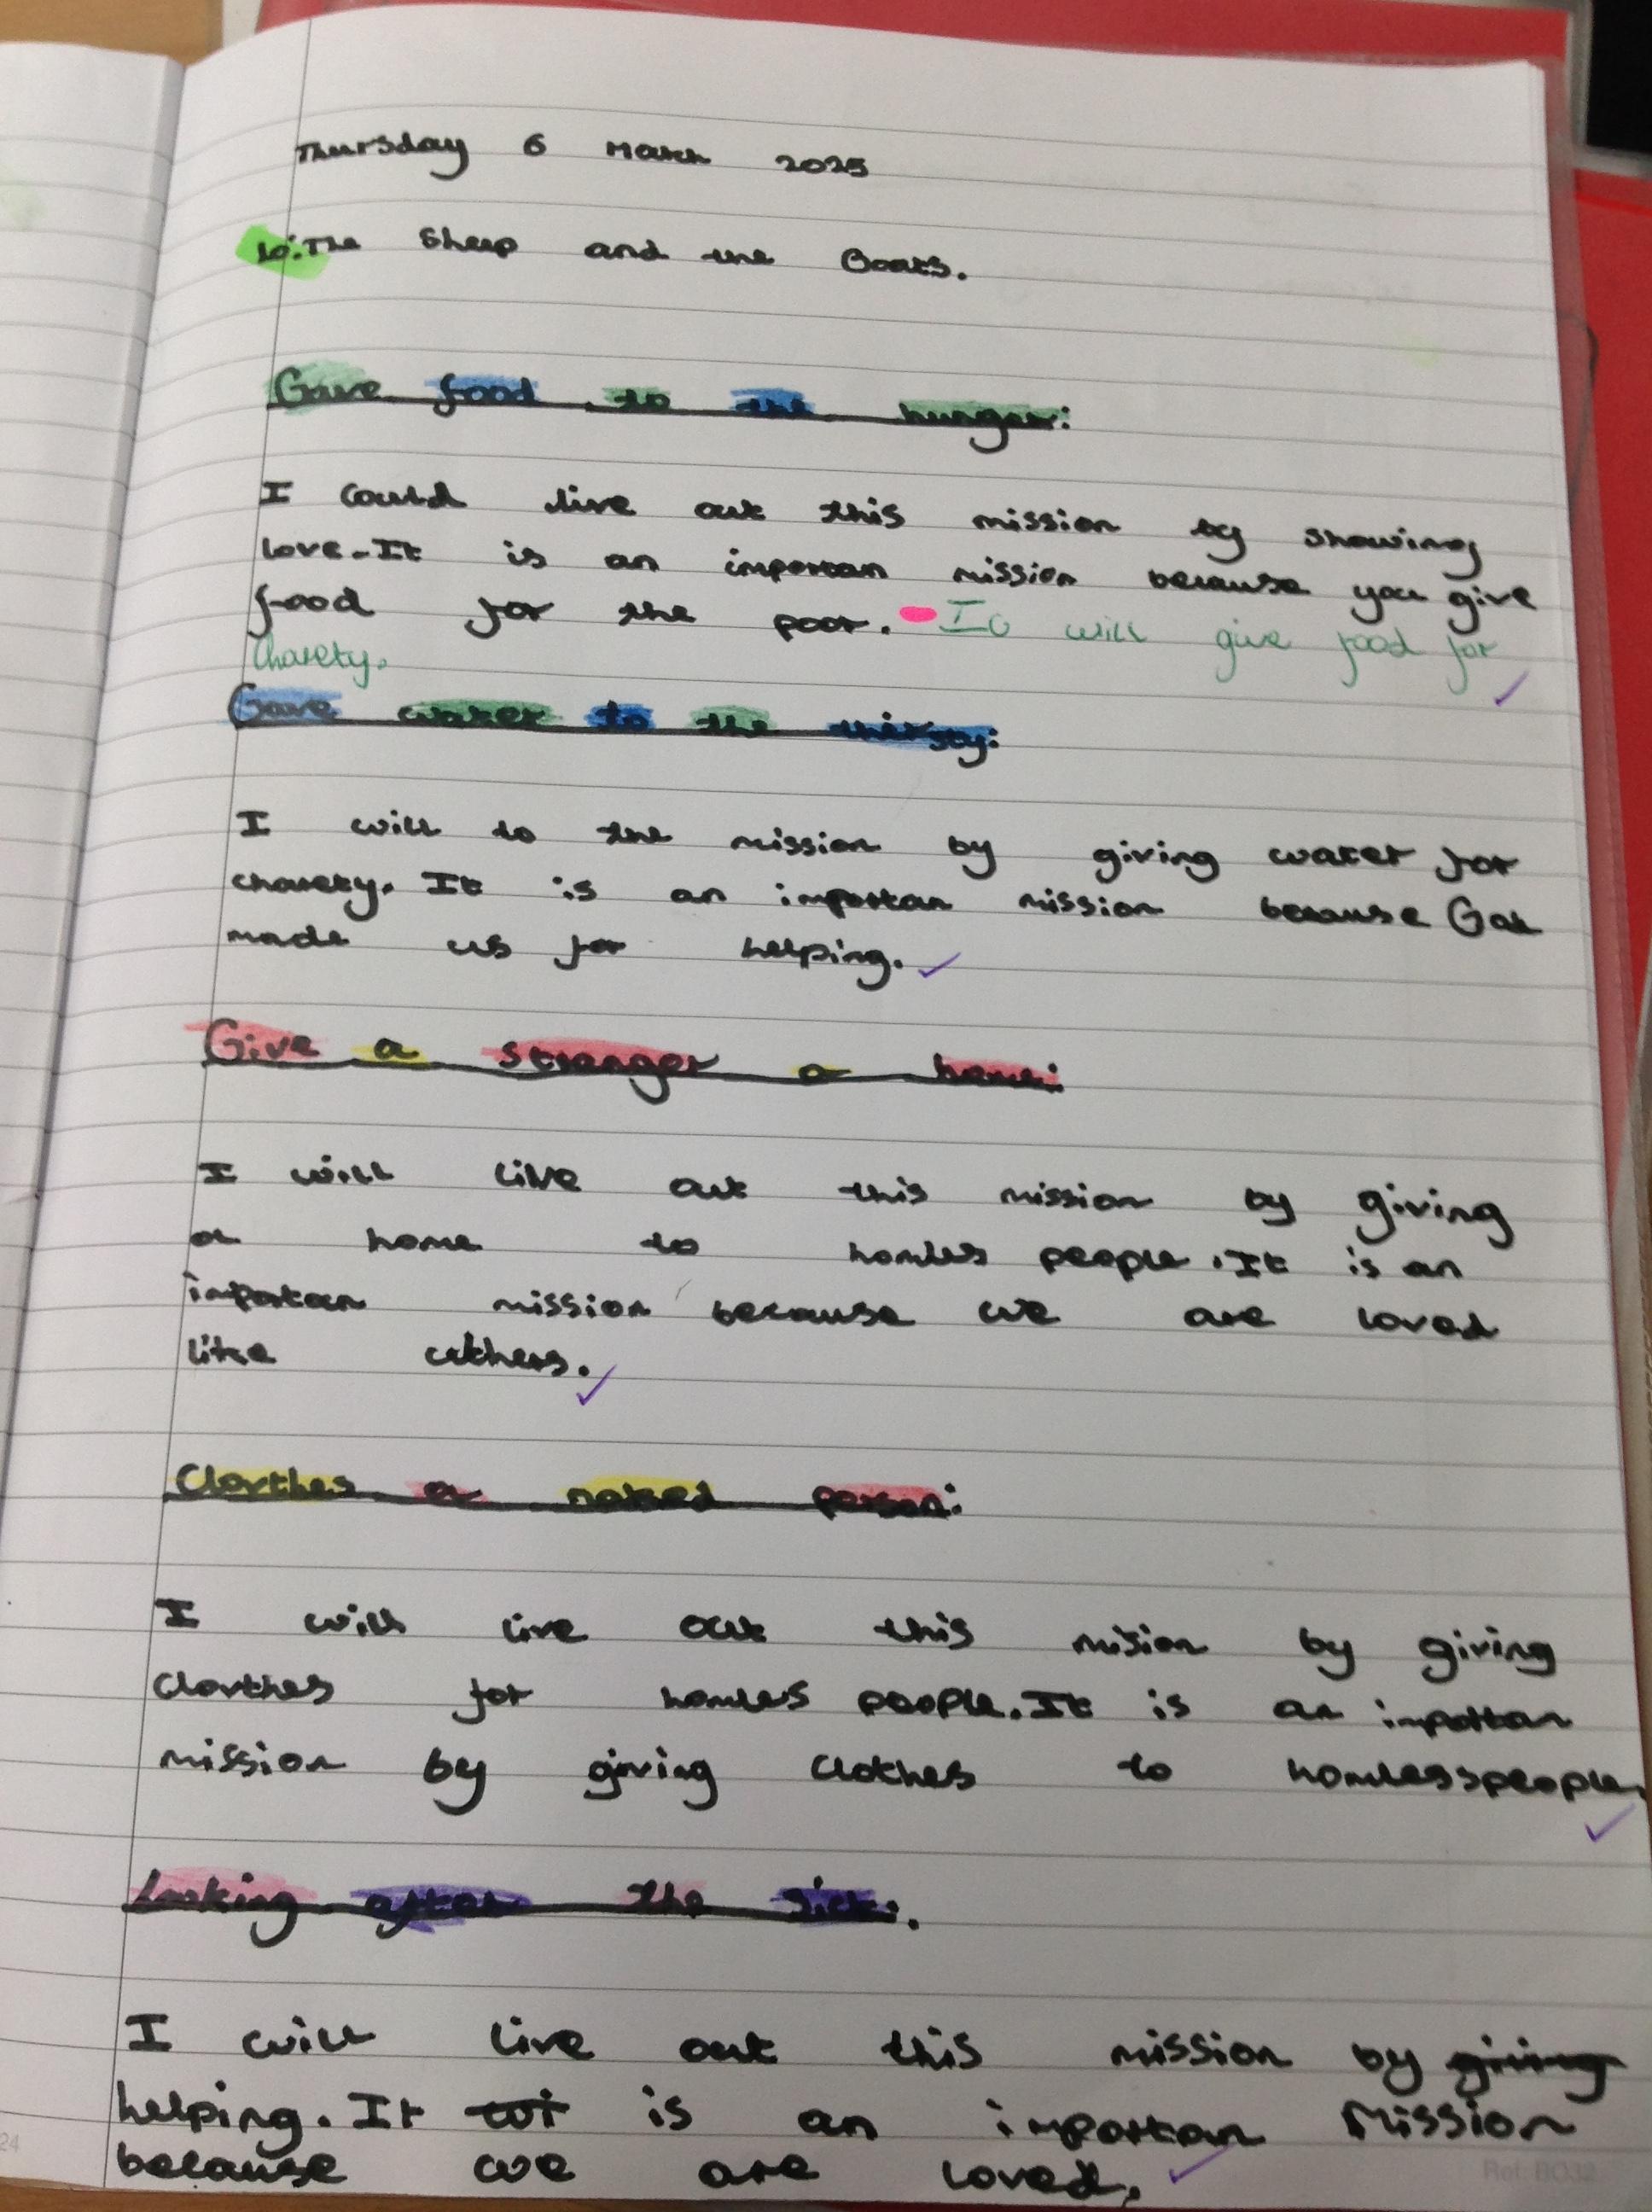 Thursday 6 March 2025
Lo: The Sheep and the Goats.
Gave food to the hunger:
I could live out this mission by showing
love. It is an importan mission because you give
food for the poor. I will give food for
Charety.
Gave water to the thirsty:
I will to the mission by giving water for
charety. It is an importan mission because God
made us for helping.
Give a stranger a home:
I will live out this mission by giving
a home to homles people. It is an
importan mission because we are loved
like uthers.
Clorthes a naked person:
I will live out this mision by giving
clorthes for homles people. It is an importan
mission by giving clothes to homlesspeople.
Looking after the sick:.
I will live out this mission by giving
helping. It is an importan Mission
because we are loved.
24
Ref: BO32